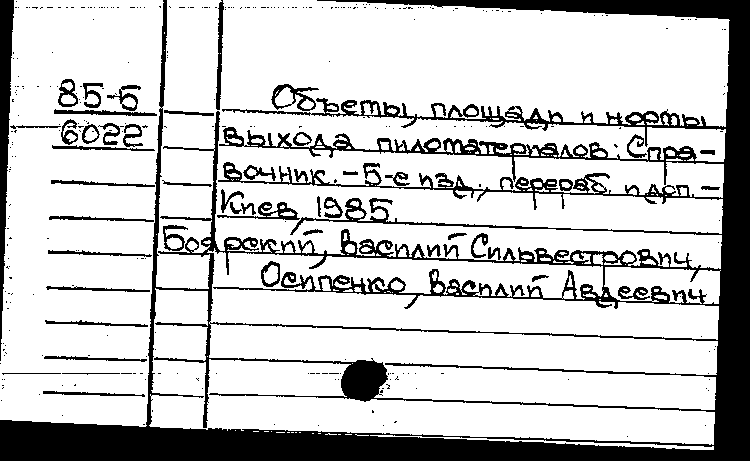 85-5
6022
Объемы, площади и нормы
выхода пиломатериалов: Спра-
вочник. - 5-е изд., перераб. и доп. -
Киев, 1985.
Боярский, Василий Сильвестрович,
Осипенко, Василий Авдеевич